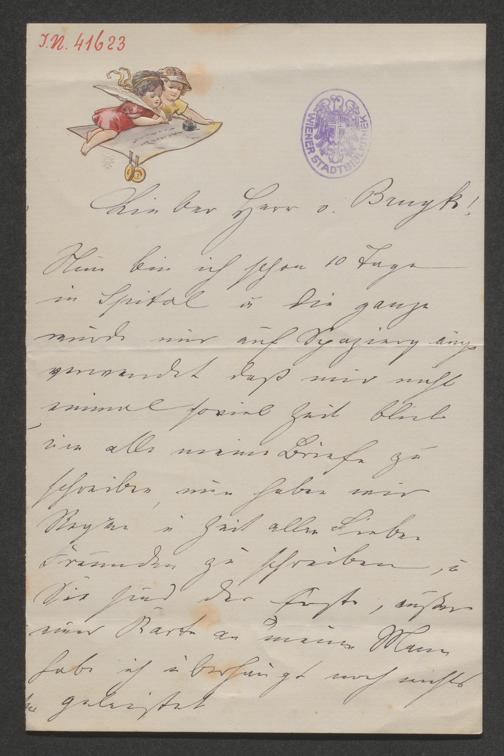 J.N. 41623
WIENER STADTBIBLIOTHEK
Lieber Herr v. Bruyk!
Nun bin ich schon 10 Tage
in Spital u die ganze
wurde nur auf Spazierg änge
verwendet daß mir nicht
einmal soviel Zeit blieb
um alle meine Briefe zu
schreiben, nun haben wir
Regen u Zeit allen lieben
Freunden zu schreiben, u
Sie sind der Erste, außer
einer Karte an meinen Mann
habe ich überhaupt noch nichts
geleistet